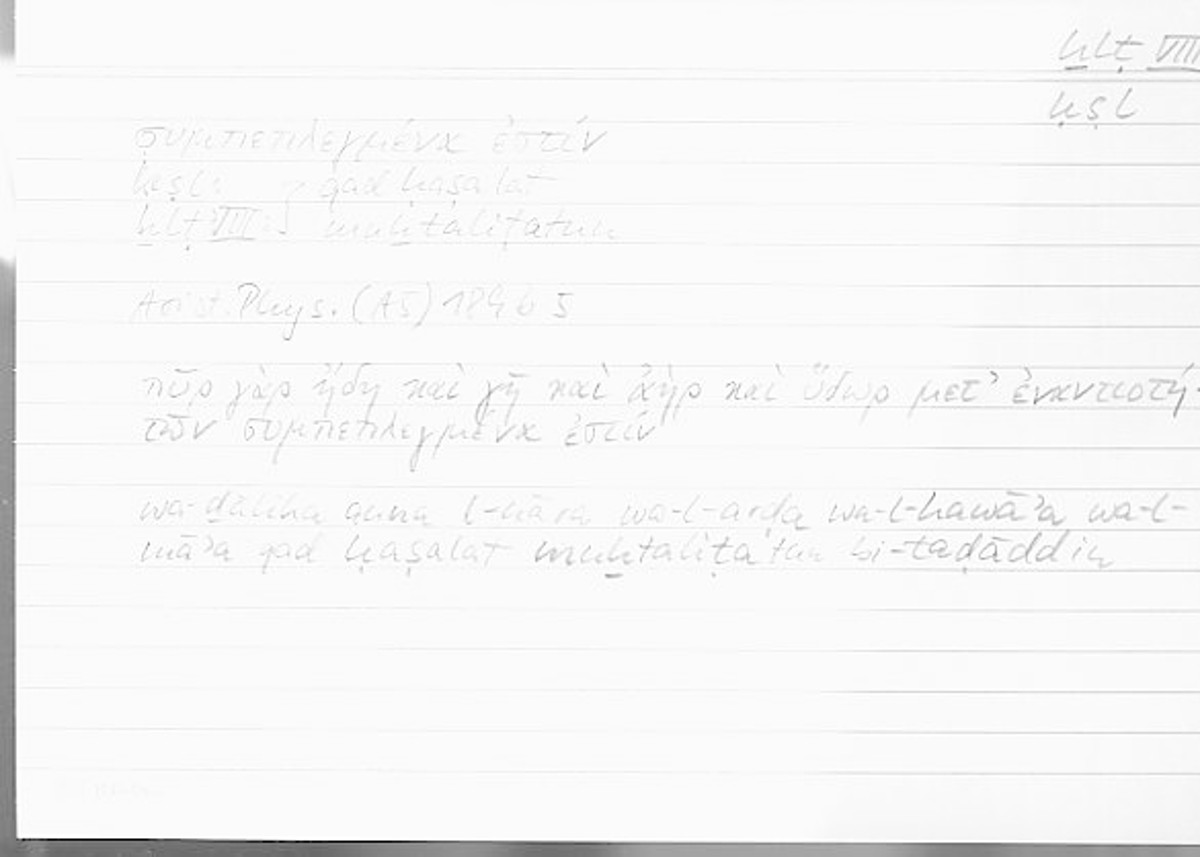 ḫlṭ VIII
ḥṣl
συμπεπλεγμένα ἐστίν
ḥṣl: qad ḥaṣalat
ḫlṭ VIII: muḫtaliṭatun
Arist. Phys. (A5) 189 b 5
πῦρ γὰρ ἤδη καὶ γῆ καὶ ἀὴρ καὶ ὕδωρ μετ’ ἐναντιοτή-
των συμπεπλεγμένα ἐστίν
wa-ḏālika anna l-nāra wa-l-arḍa wa-l-hawāʾa wa-l-
māʾa qad ḥaṣalat muḫtaliṭatun bi-taḍāddin